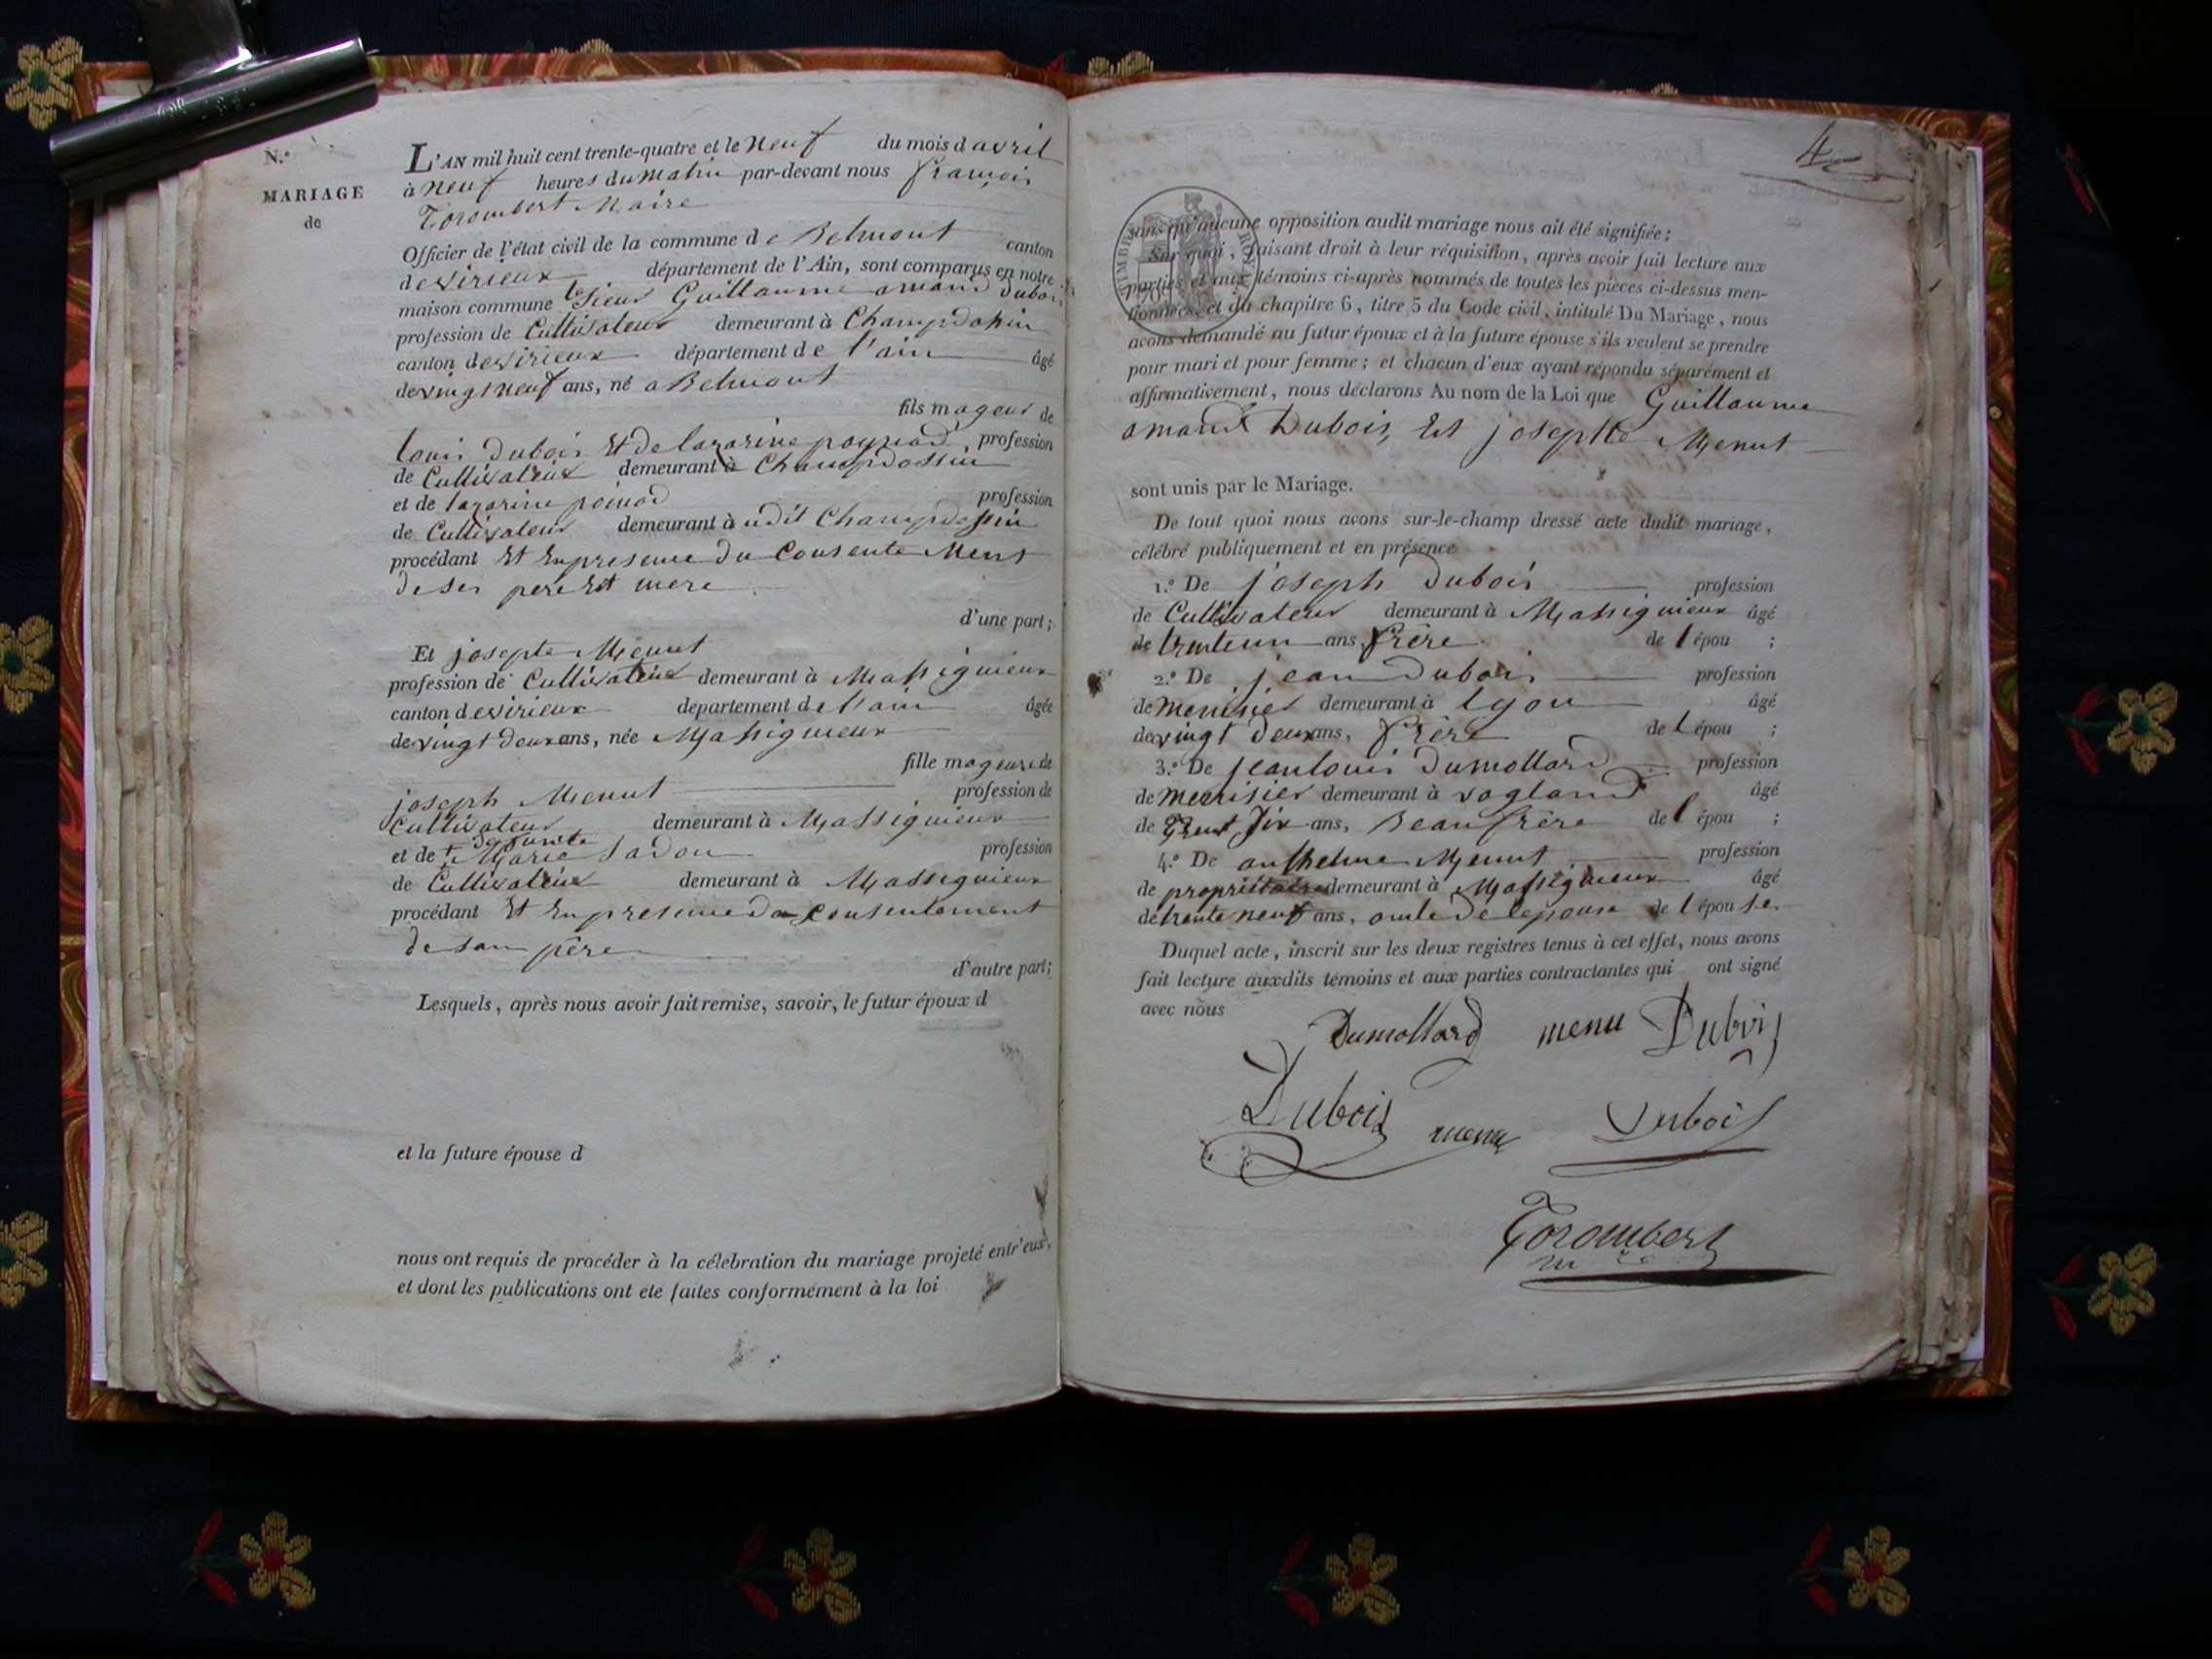 N.º
MARIAGE
de
L'AN mil huit cent trente-quatre et le neuf du mois d avril
à neuf heures du matin par-devant nous françois
Torombert Maire
Officier de l'état civil de la commune de Belmont canton
de virieux département de l'Ain, sont comparus en notre
maison commune le Sieur Guillaume amand Dubois
profession de Cultivateur demeurant à Champdossin
canton de virieux département de l'ain âgé
de vingt neuf ans, né a Belmont
fils mageur de
louis Dubois Et de lazarine poynard, profession
de Cultivateur demeurant à Champdossin
et de lazarine poinard profession
de Cultivateur demeurant à udit Champdossin
procédant Et En presence du Consente Ment
de ses père Et mere
d'une part;
Et josepte Menut
profession de Cultivatrice demeurant à Massignieux
canton de virieux département de l'ain âgée
de vingt deux ans, née Massignieux
fille mageure de
joseph Menut profession de
Cultivateur demeurant à Massignieux
defunte
et de Marie profession
de Cultivatrice demeurant à Massignieux
procédant Et En presence du Consentement
de son père
d'autre part;
Lesquels, après nous avoir fait remise, savoir, le futur époux d
et la future épouse d
nous ont requis de procéder à la célébration du mariage projeté entr'eux,
et dont les publications ont été faites conformément à la loi
4
sans qu'aucune opposition audit mariage nous ait été signifiée;
Sur quoi, faisant droit à leur réquisition, après avoir fait lecture aux
parties et aux témoins ci-après nommés de toutes les pièces ci-dessus men-
tionnées, et du chapitre 6, titre 5 du Code civil, intitulé Du Mariage, nous
avons demandé au futur époux et à la future épouse s'ils veulent se prendre
pour mari et pour femme; et chacun d'eux ayant répondu séparément et
affirmativement, nous déclarons Au nom de la Loi que Guillaume
amand Dubois, Et josephte Menut
sont unis par le Mariage.
De tout quoi nous avons sur-le-champ dressé acte dudit mariage,
célébré publiquement et en présence
1.º De joseph Dubois profession
de Cultivateur demeurant à Massignieux âgé
de trenteun ans, frère de l épou ;
2.º De jean Dubois profession
de menisier demeurant à lyon âgé
de vingt deux ans, frère de l épou ;
3.º De jean louis Dumollard profession
de menisier demeurant à vogland âgé
de Trent Six ans, Beau frère de l épou ;
4.º De anthelme Menut profession
de propriétaire demeurant à Massignieux âgé
de trente neuf ans, oncle De lepouse de l épou se.
Duquel acte, inscrit sur les deux registres tenus à cet effet, nous avons
fait lecture auxdits témoins et aux parties contractantes qui ont signé
avec nous
Dumollard menu Dubois
Dubois menu Dubois
Torombert